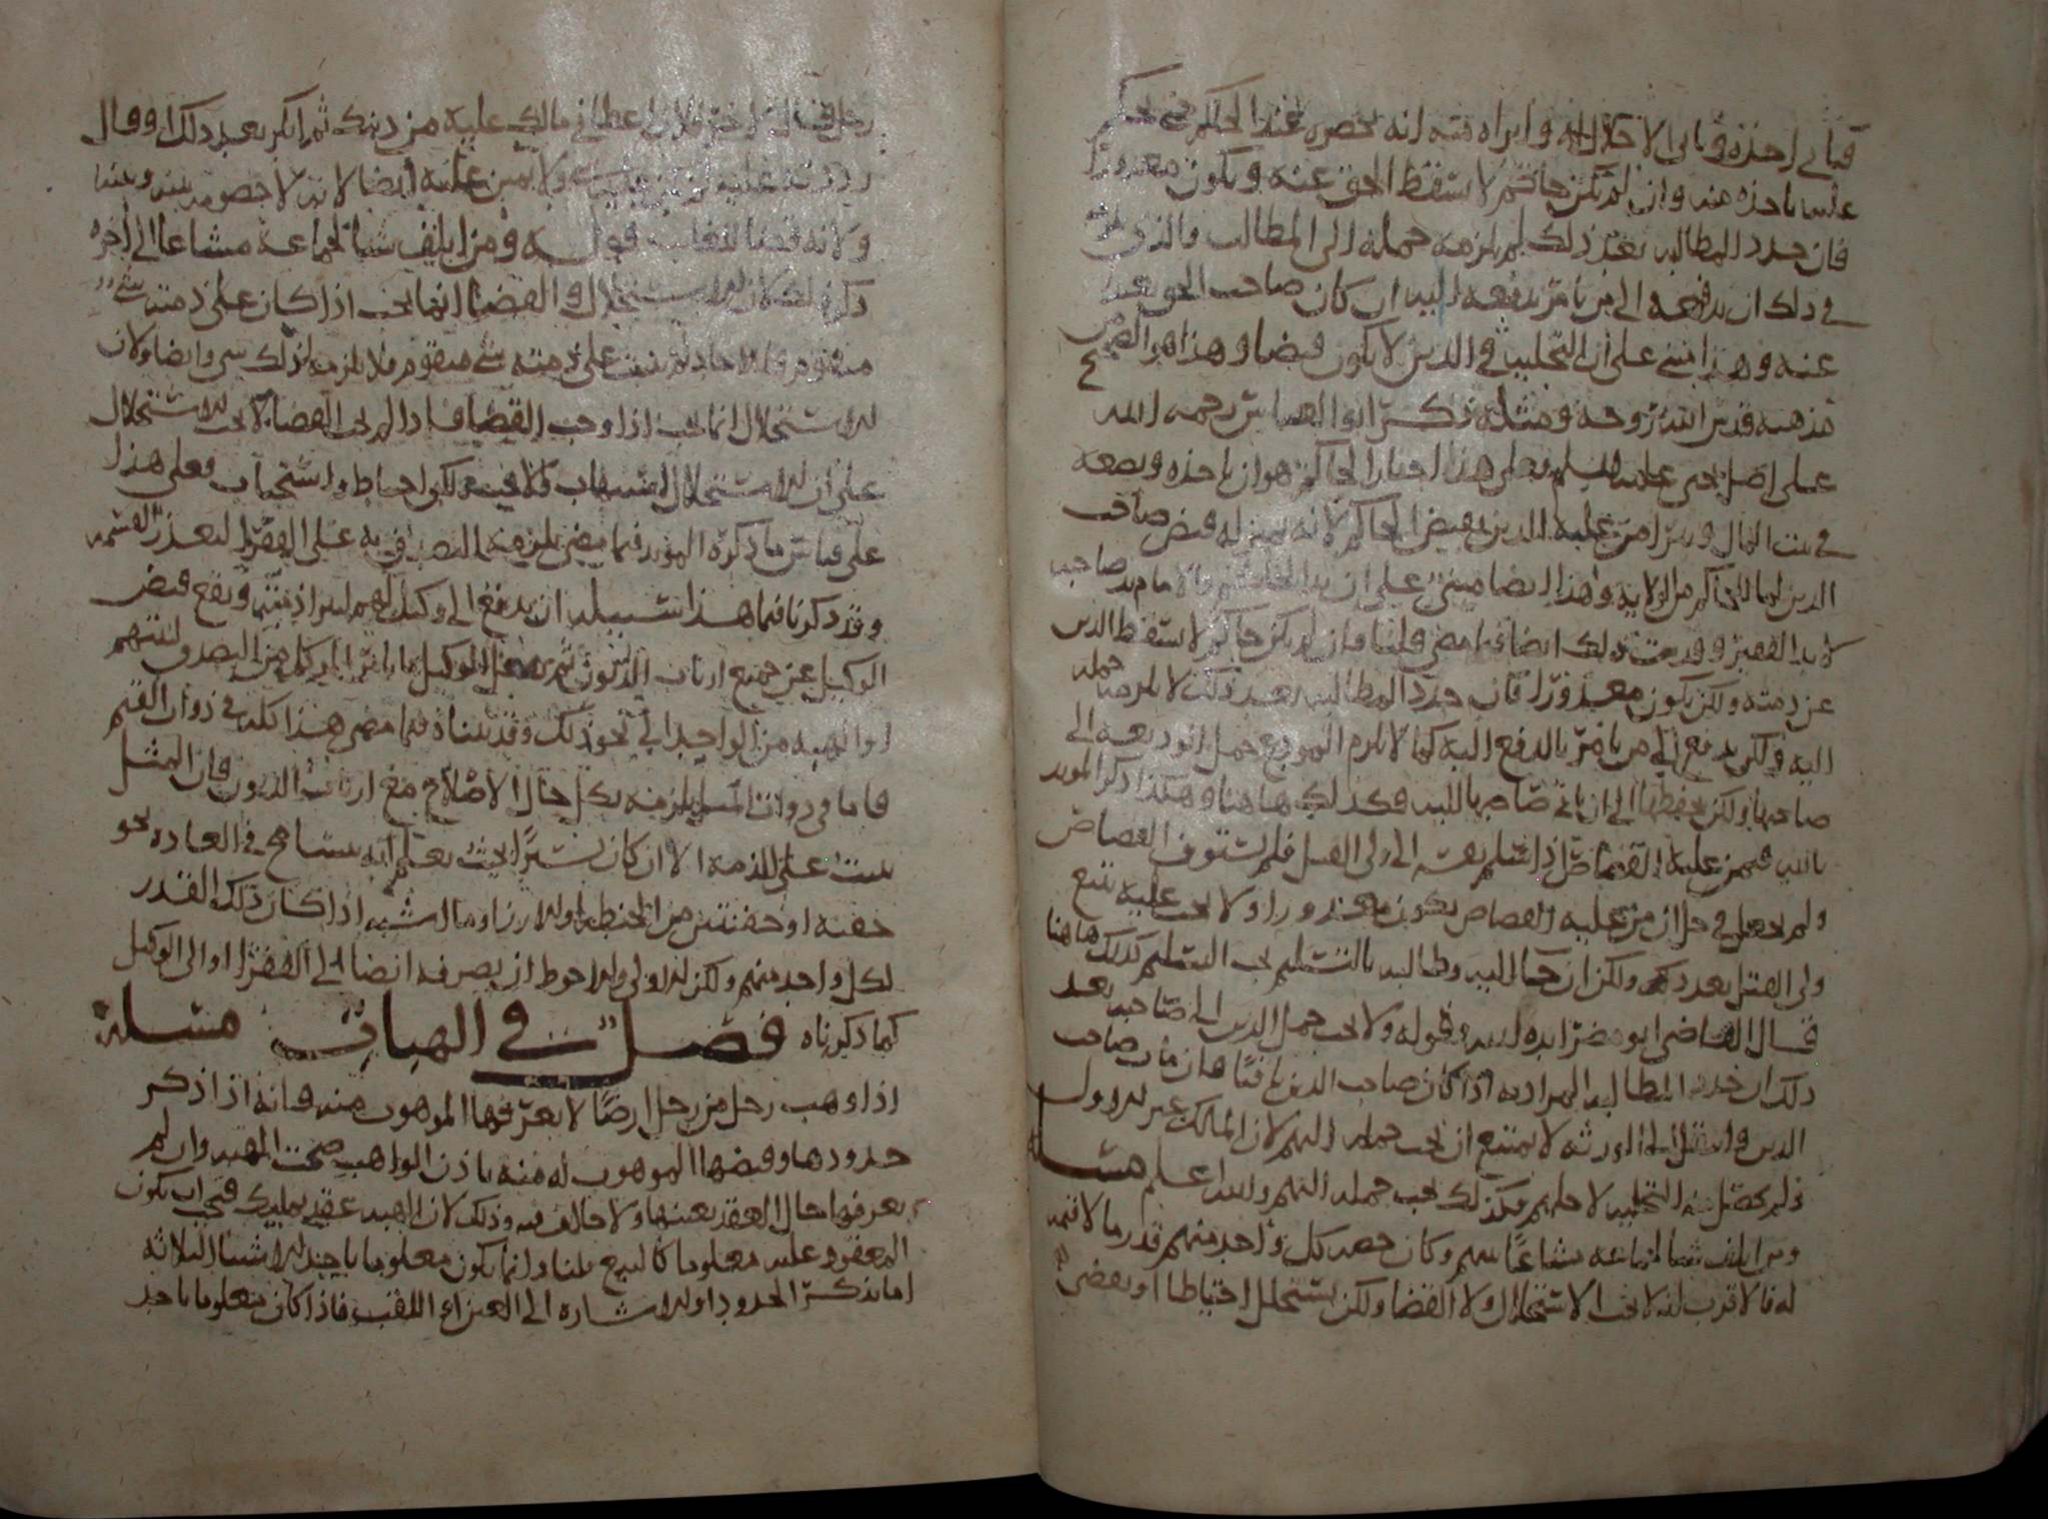 فيأبى أخذه ويأبى الاحلال له وابراه منه انه يحضره عند الحاكم حتى يحكم
عليه باخذه منه وان لم يكن حاكم لا يسقط الحق عنه ويكون معذورا
فان جدد المطالبه بعد ذلك لم يلزمه حمله الى المطالب والذي يلزمه
في ذلك ان يدفعه الى من يامر بدفعه اليه ان كان صاحب الحق بعيدا
عنه وهذا بنى على ان التخليه في الدين لا يكون قبضا وهذا هو الصحيح من
مذهبه قدس الله روحه ومثله ذكر ابو العباس رحمه الله
على اصل يحيى عليه السلم فعلى هذا اجبار الحاكم هو ان ياخذه ويضعه
في بيت المال ويبرا من عليه الدين بقبض الحاكم لانه بمنزله قبض صاحب
الدين لما للحاكم من الولايه وهذا ايضا مبني على ان يد الامام يد صاحبه
كيد الفقير وقد مر ذلك ايضا فيما مضى قلنا فان لم يكن حاكم لا يسقط الدين
عن ذمته ولكن يكون معذورا فان جدد المطالبه بعد ذلك لا يلزمه حمله
اليه ولكن يدفع الى من يامر بالدفع اليه كما لا يلزم المودع حمل الوديعه الى
صاحبها ولكن يحفظها الى ان ياتي صاحبها اليه فكذلك هاهنا وهكذا ذكر المويد
بالله فيمن عليه القصاص اذا سلم نفسه الى ولي القتيل فلم يستوف القصاص
ولم يجعل في حل ان من عليه القصاص يكون معذورا ولا يجب عليه تتبع
ولي القتل بعد ذلك ولكن ان جا اليه وطالبه بالتسليم يجب التسليم كذلك هاهنا
قال القاضي ابو مضر ايده الله وقوله ولا يجب حمل الدين الى صاحبه بعد
ذلك ان جدد المطالبه المراد به اذا كان صاحب الدين باقيا فان مات صاحب
الدين وانتقل الى الورثه لا يمتنع ان يجب حمله اليهم لان المالك غير الاول
ولم يحصل منه التخليه لاجلهم فكذلك يجب حمله اليهم والله اعلم مسله
ومن اتلف شيا لجماعه مشاعا بينهم وكان حصه كل واحد منهم قدر ما لا قيمه
له فالاقرب انه لا يجب الاستحلال ولا القضا ولكن يستحلل احتياطا او يقضي
رجل فقال اخر فلان اعطاني مالك عليه من دينك ثم انكر بعد ذلك او قال
رددته عليه ولا يمين عليه ايضا لانه لا خصومه بينه وبينه
ولانه قضا للغايب قوله ومن اتلف شيا لجماعه مشاعا الى اخره
ذكر ذلك لان الاستحلال والقضا انما يجب اذا كان على ذمته شي
متقوم فاما اذا لم يثبت على ذمته شي متقوم فلا يلزمه لذلك شي وايضا ولان
الاستحلال انما يجب اذا وجب القضا فاذا لم يجب القضا لا يجب الاستحلال
على ان الاستحلال ولكن احتياط واستحباب فعلى هذا
على قياس ما ذكره المويد فيما مضى يلزمه التصدق به على الفقرا لتعذر القسمه
وقد ذكرنا فيما هذا سبيله ان يدفع الى وكيل لهم ليبرا ذمته ويقع قبض
الوكيل عن جميع ارباب الديون ثم يفعل الوكيل ما يامر الموكل من التصدق لنفسهم
او الهبه من الواحد الى نحو ذلك وقد بيناه فيما مضى هذا كله في ذوات القيم
فاما في ذوات المثل يلزمه بكل حال الاصلاح مع ارباب الديون فان المثل
يثبت على الذمه الا ان كان يسيرا بحيث يعلم انه يتسامح في العاده نحو
حفنه او حفنتين من الحنطه او الارز او ما اشبه اذا كان ذلك القدر
لكل واحد منهم ولكن الاولى والاحوط ان يصرفه ايضا الى الفقرا او الى الوكيل
كما ذكرناه فصل في الهبات مسله
اذا وهب رجل من رجل ارضا لا يعرفها الموهوب منه فانه اذا ذكر
حدودها وقبضها الموهوب له منه باذن الواهب صحت الهبه وان لم
يعرفها حال العقد بعينها ولا خالف فيه وذلك لان الهبه عقد تمليك فيجب ان يكون
المعقود عليه معلوما كالبيع قلنا وانما يكون معلوما باحد الاشيا الثلاثه
اما بذكر الحدود او الاشاره الى العين او اللقب فاذا كان معلوما باحد